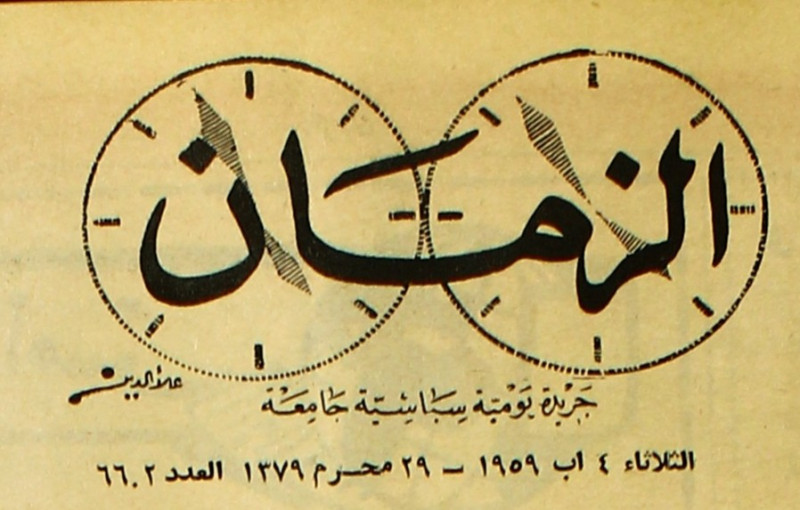 الزمان
علاءالدين
جَريْدة يَوْميَة سِيَاسْيَّة جَامِعَة
الثلاثاء ٤ اب ١٩٥٩ – ٢٩ محـرم ١٣٧٩ العدد ٦٦٠٢